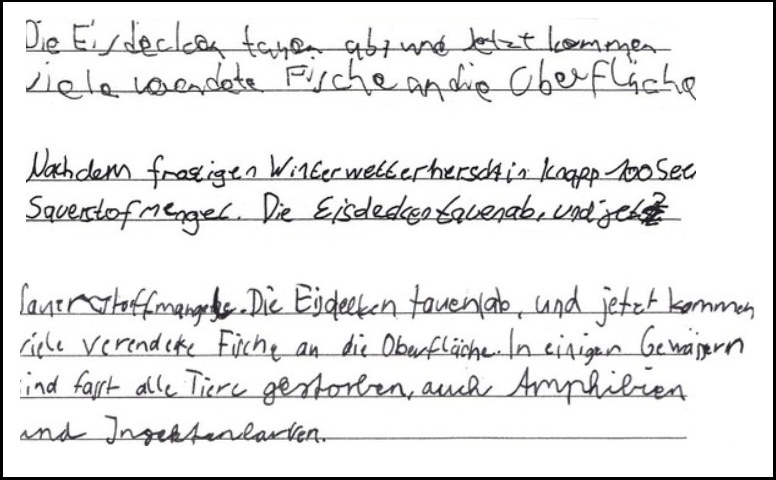 Die Eisdecken tauen ab, und jetzt kommen
viele verendete Fische an die Oberfläche
Nach dem frostigen Winterwetter herscht in knapp 100 See
Sauerstofmengel. Die Eisdecken tauen ab, und jetzt
Sauerstoffmangel. Die Eisdecken tauen ab, und jetzt kommen
viele verendete Fische an die Oberfläche. In einigen Gewässern
ind fasst alle Tiere gestorben, auch Amphibien
und Insektenlarven.